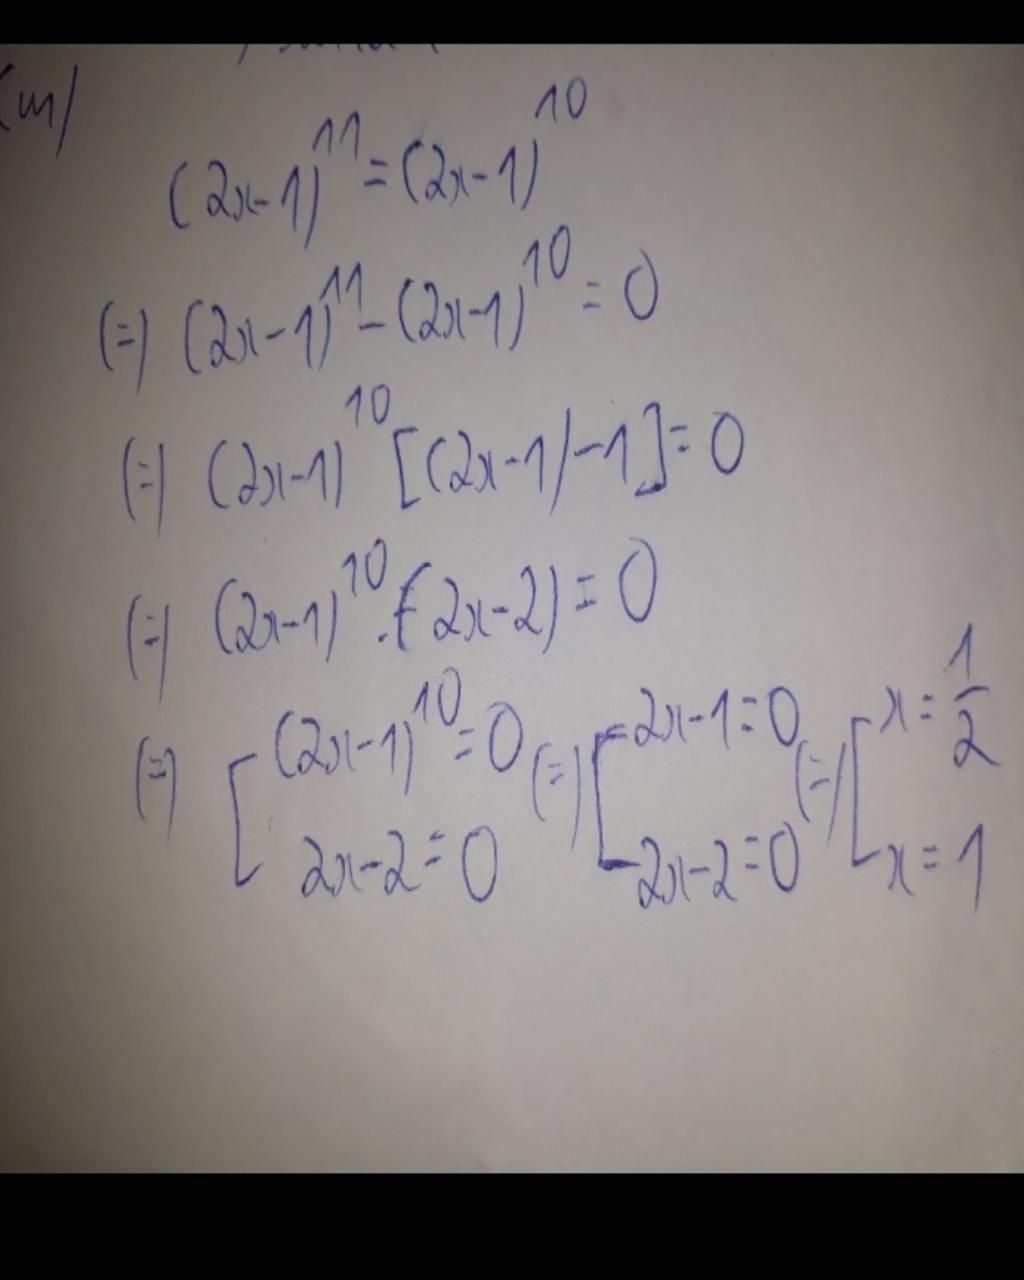 m)
(2x-1)^11 = (2x-1)^10
(=) (2x-1)^11 - (2x-1)^10 = 0
(=) (2x-1)^10 [(2x-1)-1] = 0
(=) (2x-1)^10 . (2x-2) = 0
(=) [ (2x-1)^10 = 0 (=) [ 2x-1 = 0 (=) [ x = 1/2
2x-2 = 0 2x-2 = 0 x = 1